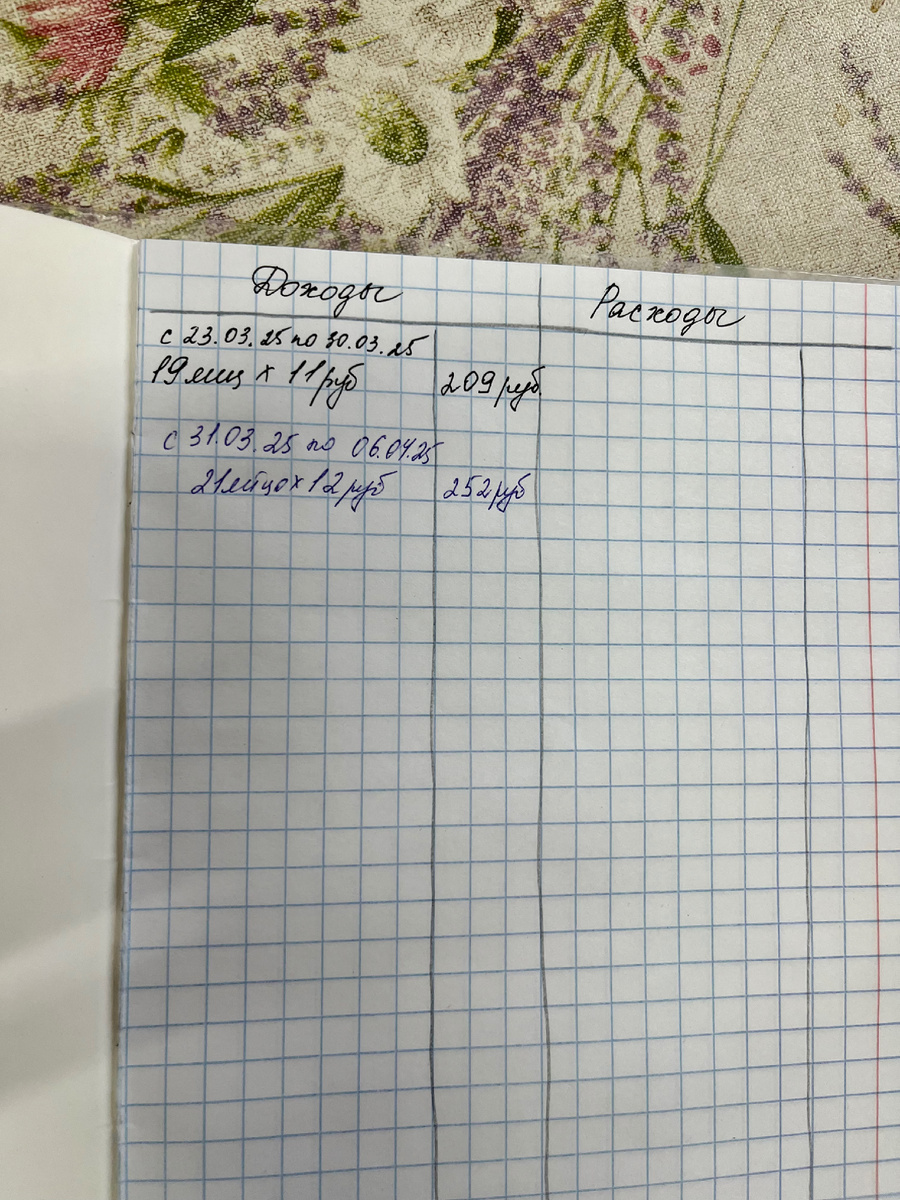 Доходы
Расходы
с 23.03.25 по 30.03.25
19 яиц х 11 руб
209 руб.
с 31.03.25 по 06.04.25
21 яйцо х 12 руб
252 руб